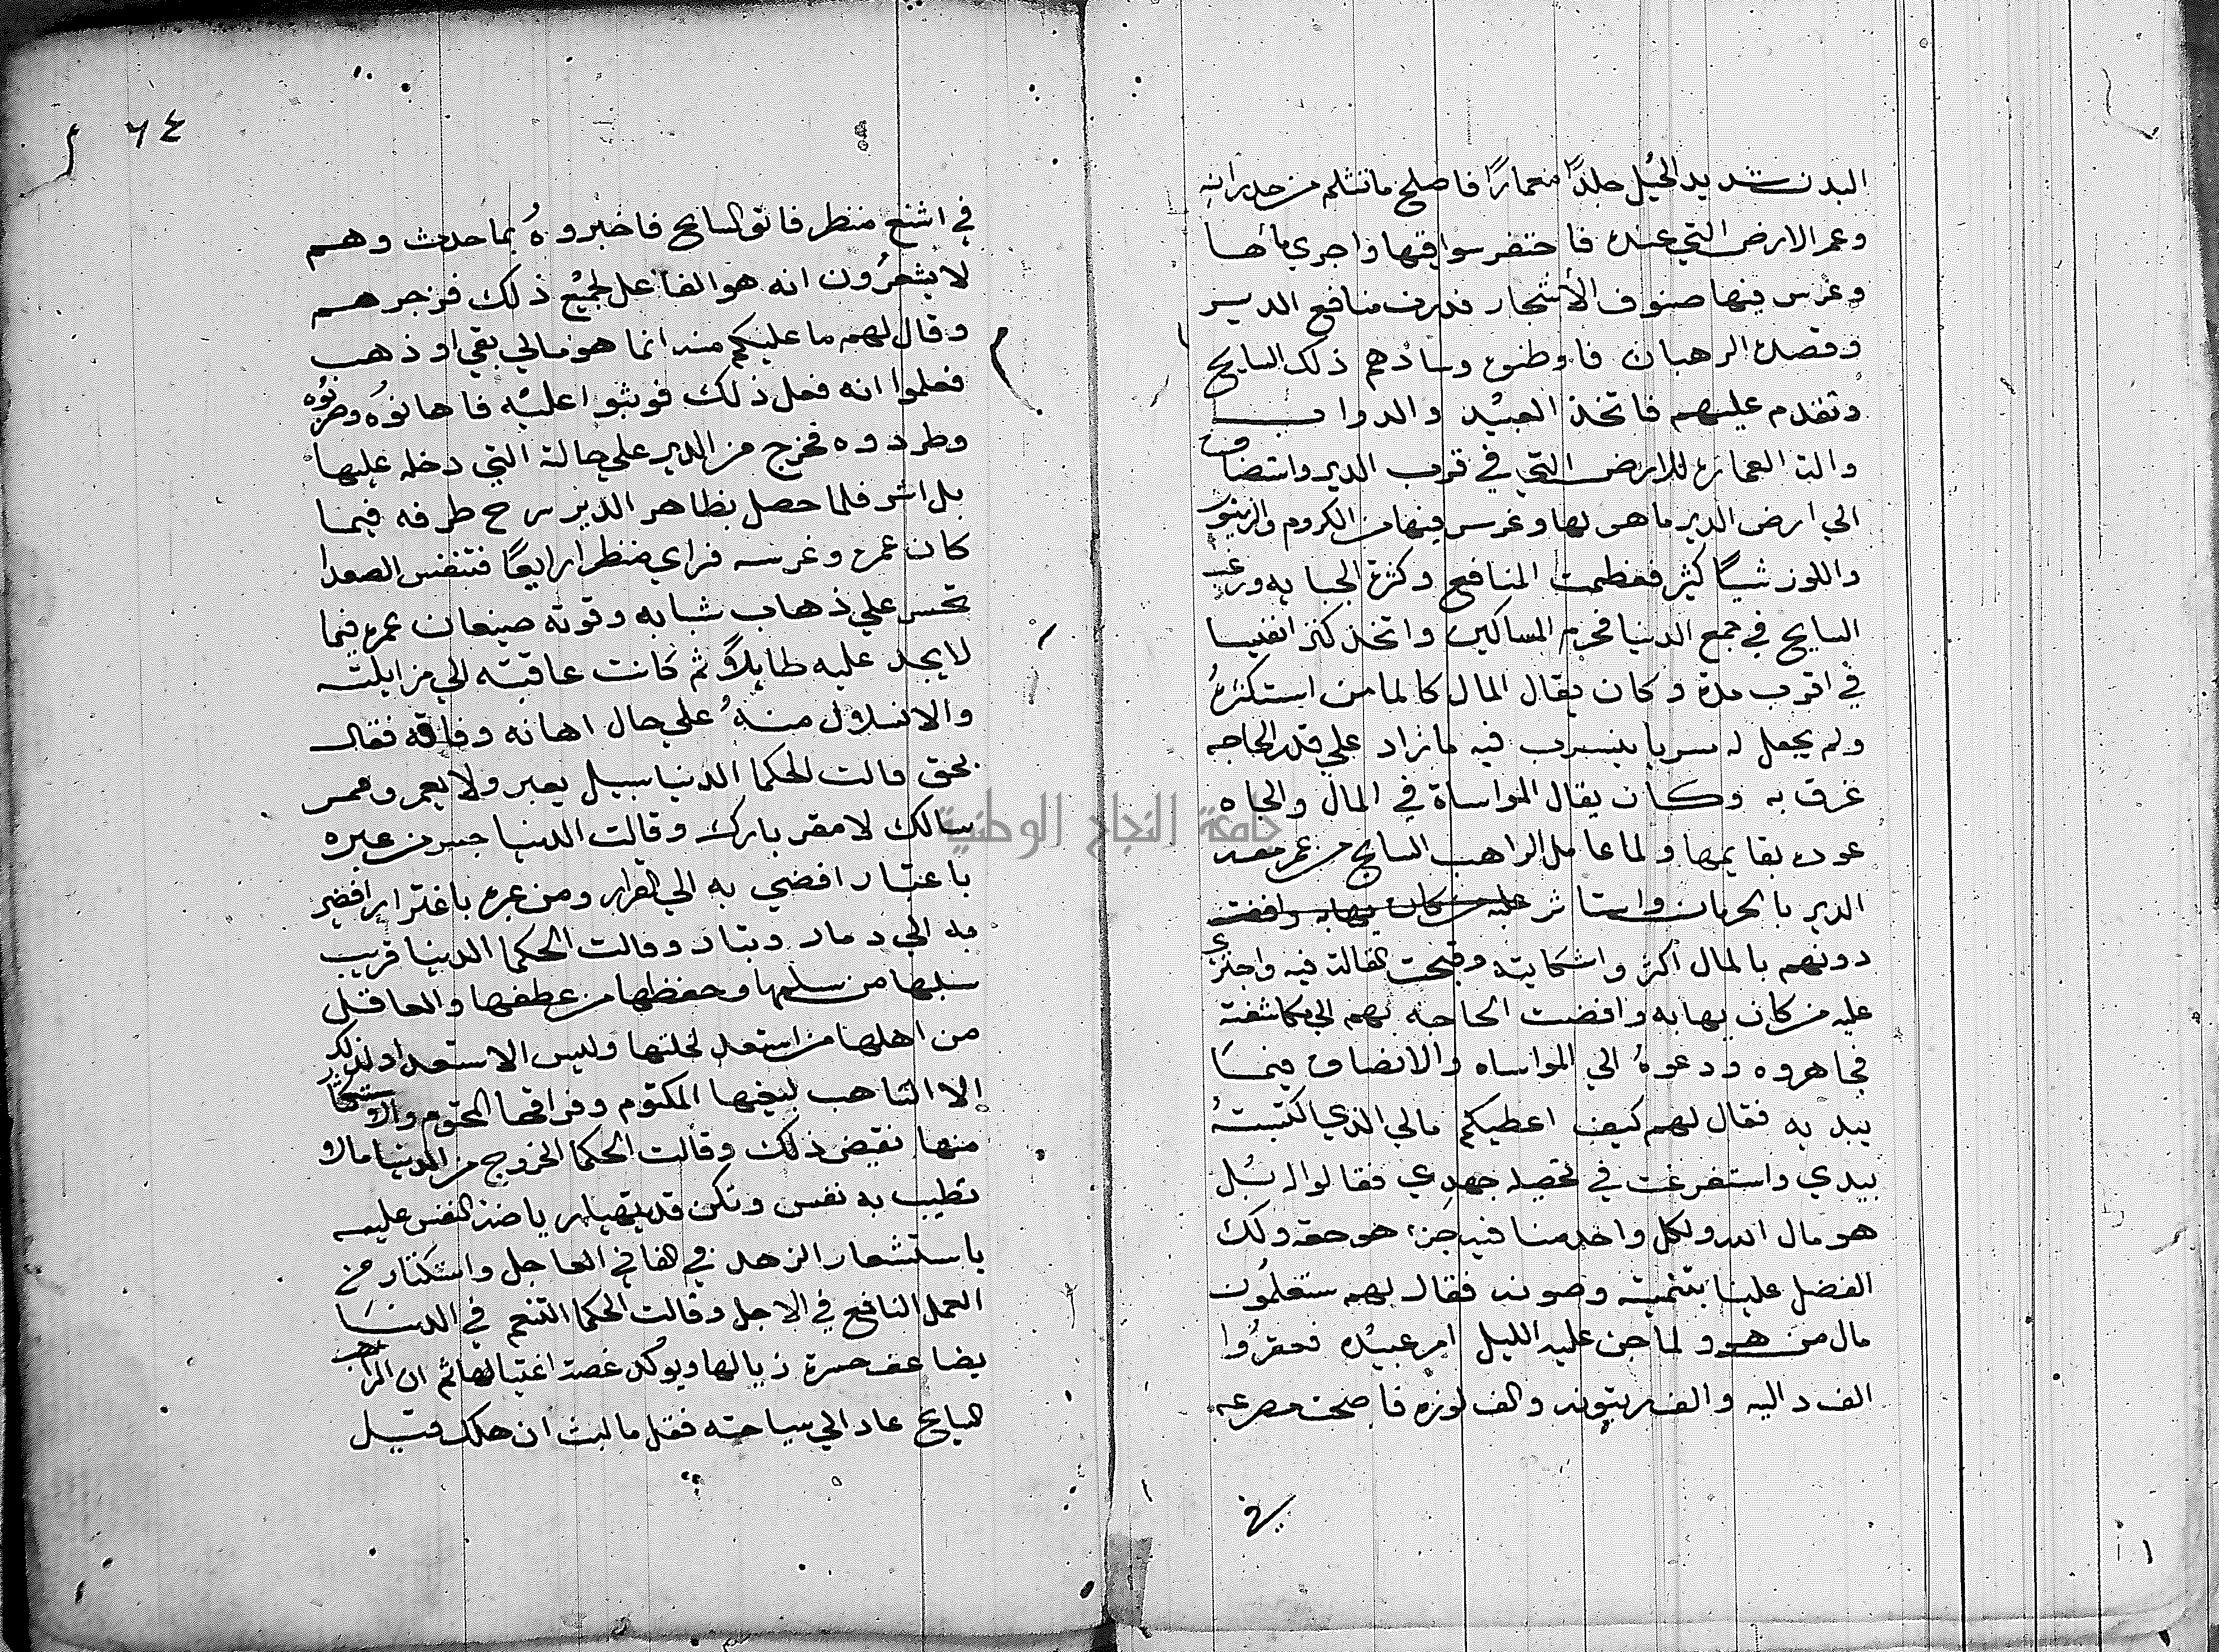 البدن شديد الحيل جلدًا معمارًا فاصلح ما تثلم من جدرانه
وعمر الارض التي عنده فاحتفر سواقيها واجري ماها
وغرس فيها صنوف الأشجار فدرت منافع الدير
وقصده الرهبان فاوطنوه وسادهم ذلك السايح
وتقدم عليهم فاتخذ العبيد والدواب
والة العماره للارض التي في قرب الدير واستضاف
الي ارض الدير ما هو لها وغرس فيها من الكروم والزيتون
واللوز شياً كثير فعظمت المنافع وكثرة الجبايه ورغب
السايح في جمع الدنيا فحرم المساكين واتخذ كنزا نفيسا
في اقرب مدة وكان يقال المال كالما من استكثرهُ
ولم يجعل له سربا ينسرب فيه ما زاد علي قدر الحاجه
غرق به وكان يقال المواساة في المال والجاه
عوده بقايمها ولما عامل الراهب السايح من عمر معه
الدير بالحرمان واستاثر عليه من كان يهابه وافضت
دونهم بالمال اكثروا شكايته وقبحت المقالة فيه واجترى
عليه من كان يهابه وافضت الحاجه بهم الي مكاشفته
فجاهروه ودعوهُ الي المواساه والانصاف فيما
بيديه فقال لهم كيف اعطيكم مالي الذي اكتسبتهُ
بيدي واستفرغت في تحصيله جهدي فقالوا له بل
هو مال الله ولكل واحد منا فيه جزء هو حقه ولك
الفضل علينا بتنميته وصونه فقال لهم ستعلمون
مال من هو ولما جن عليه الليل امر عبيده فعقروا
الف داليه والف زيتونه والف لوزه فاصبحت مصرعه
في
٦٤
في اشنع منظر فاتو السايح فاخبروهُ بما حدث وهم
لا يشعرون انه هو الفاعل لجميع ذلك فزجرهم
وقال لهم ما عليكم منه انما هو مالي بقي او ذهب
فعلموا انه فعل ذلك فوثبوا عليه فاهانوهُ وضربوه
وطردوه فخرج من الدير علي حالة التي دخله عليها
بل اشر فلما حصل بظاهر الدير سرح طرفه فيما
كان عمره وغرسه فراي منظرا رايعًا فتنفس الصعدا
تحسر علي ذهاب شبابه وقوته وضيعان عمره فيما
لا يجد عليه طايلاً ثم كانت عاقبته الي مزايلته
والانسلال منهُ علي حال اهانه وفاقه فقال
بحق قالت الحكما الدنيا سبيل يعبر ولا يعمر وممر
سالك لا مقر بارك وقالت الدنيا جسر من عبره
باعتبار افضي به الي القرار ومن عبره باغترار افضي
به الي دمار وتبار وقالت الحكما الدنيا قريب
سلبها من سلمها وحفظها من عطفها والعاقل
من اهلها من استعد لخلتها وليس الاستعداد لذلك
الا التاهب لبينها المكتوم وفراقها المحتوم والاستكثار
منها نقيض ذلك وقالت الحكما الخروج من الدنيا مالا
تطيب به نفس ولكن قد يتهيا برياضة النفس عليه
باستشعار الزهد في الفاني العاجل واستكثار من
العمل النافع في الاجل وقالت الحكما التنعم في الدنيا
يضاعف حسرة زيالها ويوكد غصة اغتيالها ثم ان الراهب
السايح عاد الي سياحته فقل ما لبث ان هلك قتيل
جامعة النجاح الوطنية